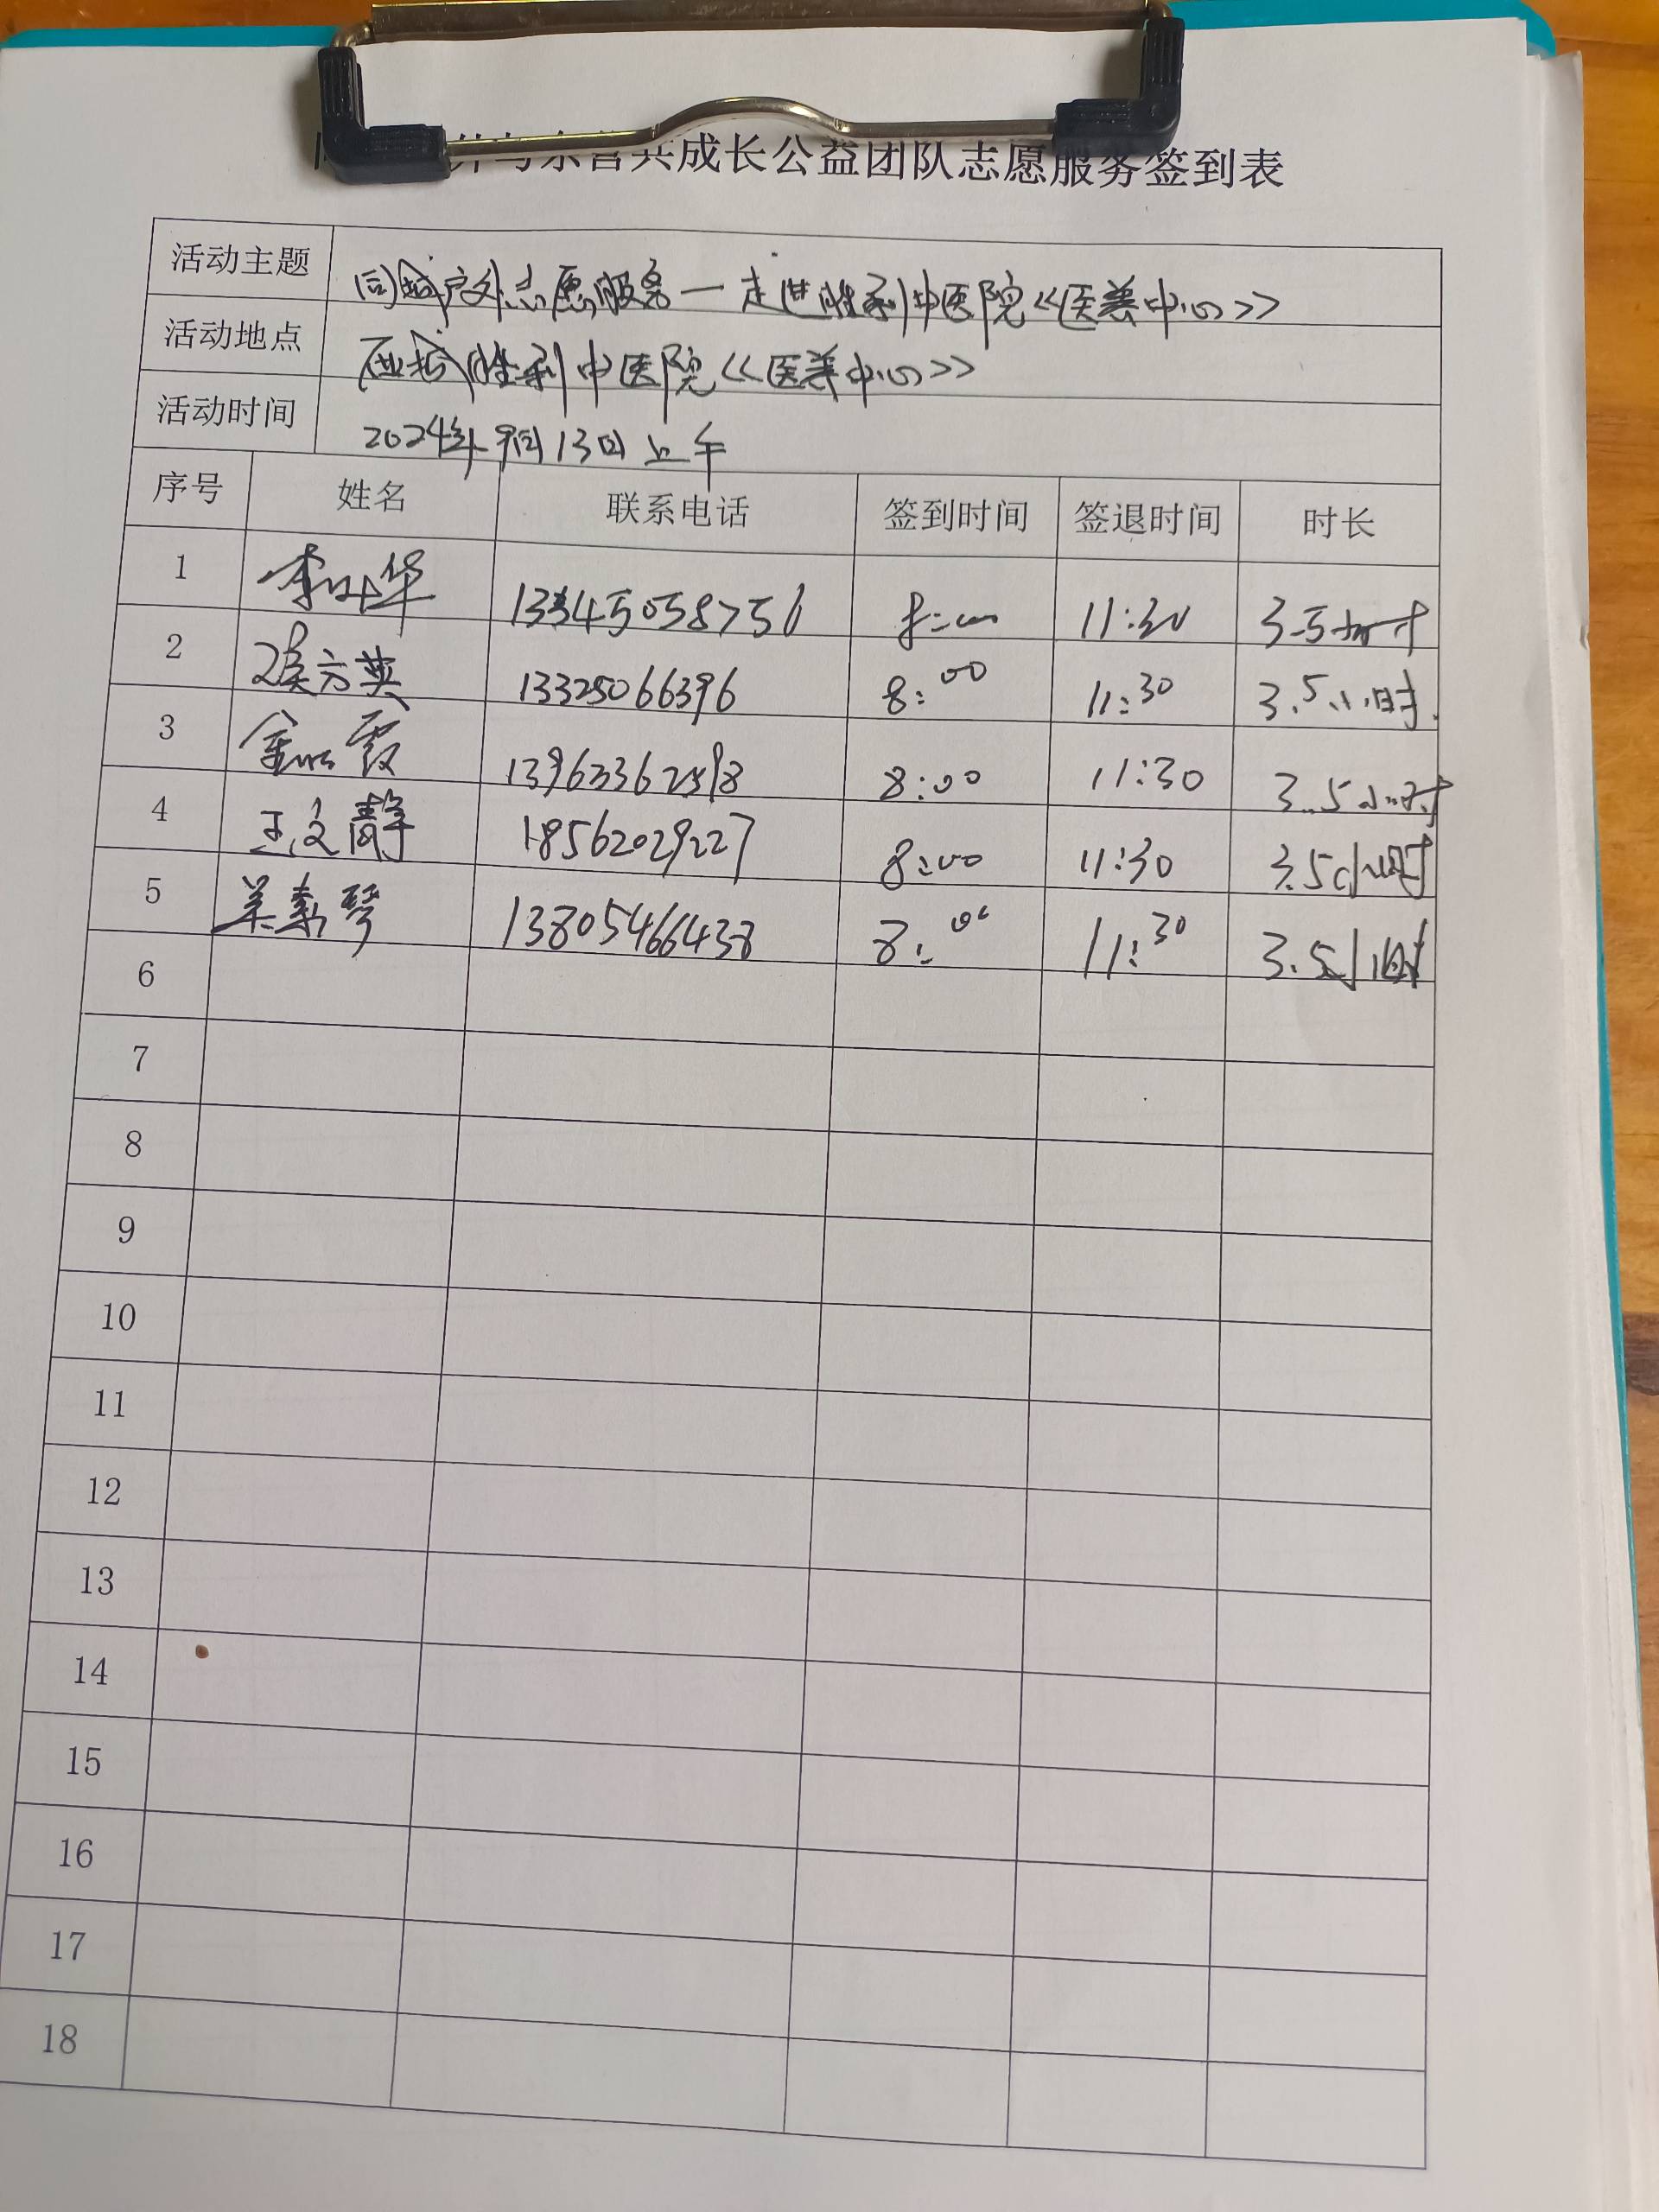 与东营共成长公益团队志愿服务签到表
活动主题 同城户外志愿服务一走进胜利中医院<<医养中心>>
活动地点 胜利中医院<<医养中心>>
活动时间 2024年9月13日上午
序号 姓名 联系电话 签到时间 签退时间 时长
1 华 13345058756 8:00 11:30 3.5小时
2 方英 13325066396 8:00 11:30 3.5小时.
3 霞 8:00 11:30 3.5小时
4 王文静 18562029227 8:00 11:30 3.5小时
5 琴 13805466438 8:00 11:30 3.5小时
6
7
8
9
10
11
12
13
14
15
16
17
18